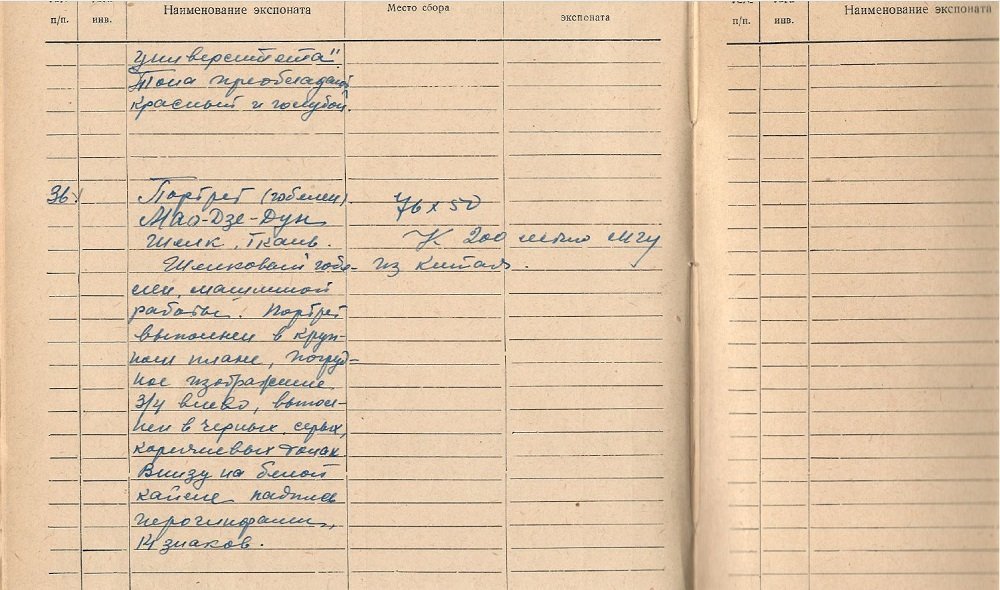 п/п.
инв.
Наименование экспоната
Место сбора
экспоната
п/п.
инв.
Наименование экспоната
университета".
Тона преобладают
красный и голубой.
36.
Портрет (гобелен). 76 х 50
Мао-Дзе-Дун
Шелк, ткань. К 200 летию МГУ
Шелковый гобе- из Китая.
лен, машинной
работы. Портрет
выполнен в круп-
ном плане, погруд-
ное изображение
3/4 влево, выпол-
нен в черных, серых,
коричневых тонах
Внизу на белой
кайме надпись
иероглифами,
14 знаков.